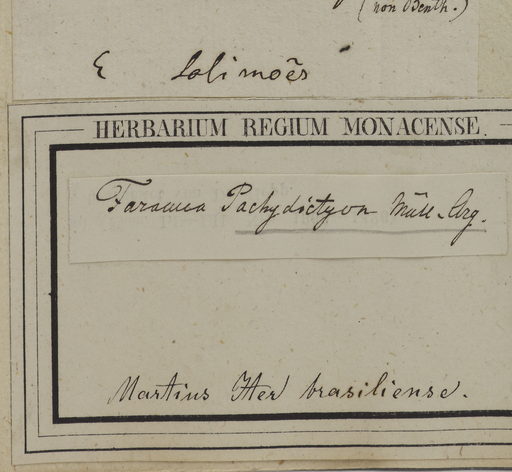 (non Benth.)
E Solimoẽs
HERBARIUM REGIUM MONACENSE.
Faramea Pachydictyon Müll. Arg.
Martius Iter brasiliense.